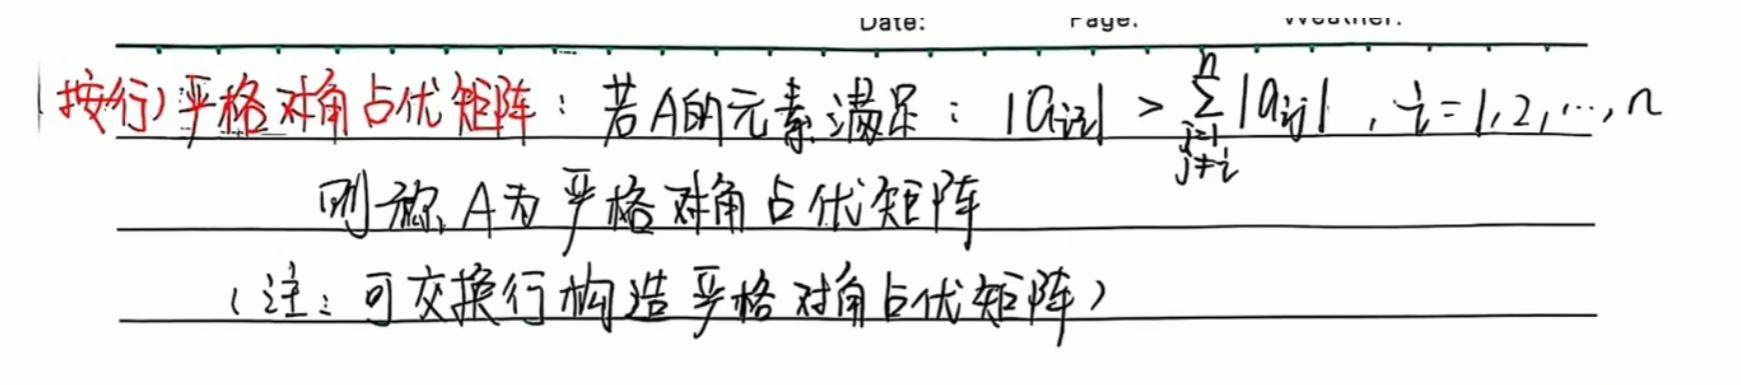 Date: Page: Weather:
(按行)严格对角占优矩阵：若A的元素满足：|a_{ii}| > \sum_{\substack{j=1 \\ j≠i}}^{n} |a_{ij}|，i=1,2,…,n
则称A为严格对角占优矩阵
(注：可交换行构造严格对角占优矩阵)